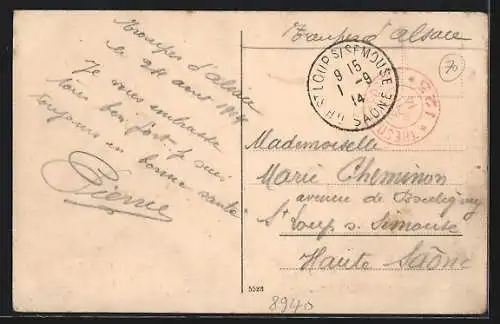 Troupes d'Alsace
le 24 aout 1914
Je vous embrasse
tous bien fort. je suis
toujours en bonne santé
Pierre
Troupes d'Alsace
ST LOUP S/SEMOUSE
9 15
1 -9
14
HTE SAONE
TRESOR
70
Mademoiselle
Marie Cheminon
avenue de Bouligney
St Loup s. Simouse
Haute Saône
8940